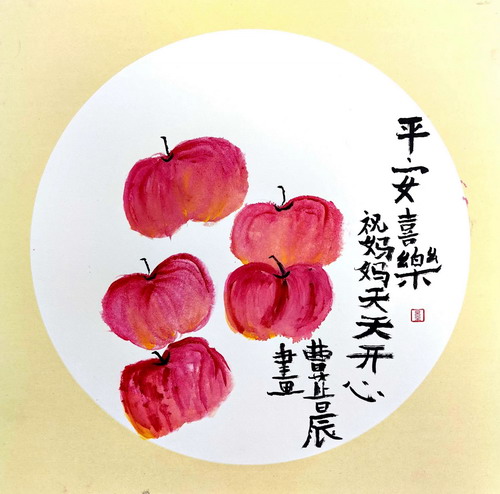 平安喜樂
祝妈妈天天开心
曹晋辰
畫